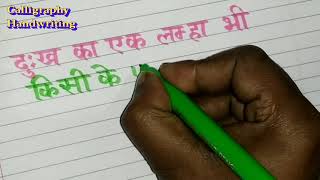 Calligraphy
Handwriting
दुःख का एक लम्हा भी
किसी के